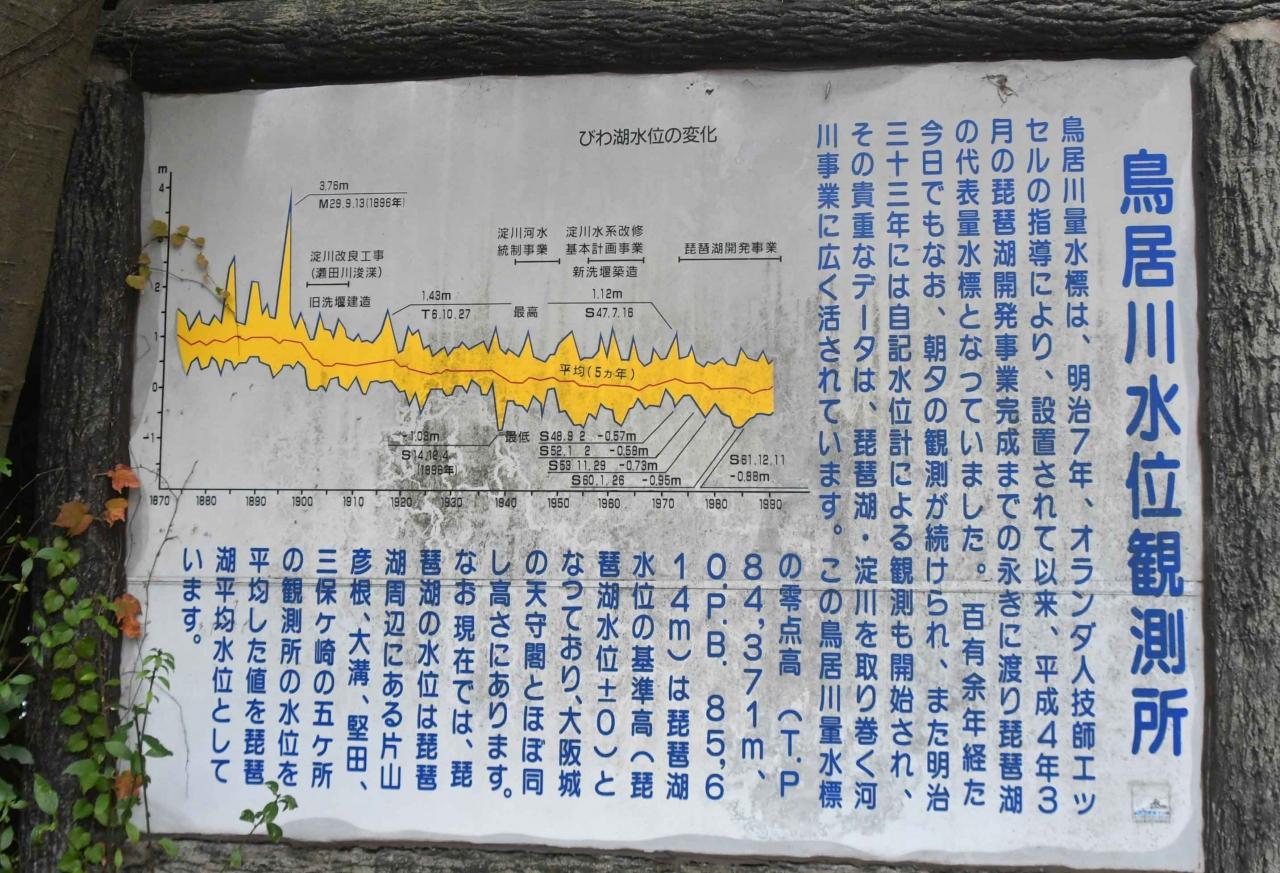 鳥居川水位観測所
鳥居川量水標は、明治7年、オランダ人技師エッ
セルの指導により、設置されて以来、平成4年3
月の琵琶湖開発事業完成までの永きに渡り琵琶湖
の代表量水標となっていました。百有余年経た
今日でもなお、朝夕の観測が続けられ、また明治
三十三年には自記水位計による観測も開始され、
その貴重なデータは、琵琶湖・淀川を取り巻く河
川事業に広く活されています。この鳥居川量水標
の零点高（T.P
84,371m、
O.P.B. 85,6
14m）は琵琶湖
水位の基準高（琵
琶湖水位±0）と
なっており、大阪城
の天守閣とほぼ同
し高さにあります。
なお現在では、琵
琶湖の水位は琵琶
湖周辺にある片山
彦根、大溝、堅田、
三保ケ崎の五ケ所
の観測所の水位を
平均した値を琵琶
湖平均水位として
います。
びわ湖水位の変化
m
4
2
1
0
-1
3,76m
M29.9.13(1896年)
淀川改良工事
(瀬田川浚渫)
旧洗堰建造
淀川河水
統制事業
淀川水系改修
基本計画事業
新洗堰築造
琵琶湖開発事業
1,43m
T6,10,27
最高
1.12m
S47.7.16
平均(5ヵ年)
-1.03m
S14.12.4
最低
S48.9 2 -0.57m
S52.1 2 -0.58m
S59 11.29 -0.73m
S60.1.26 -0.95m
S61.12.11
-0.88m
1870 1880 1890 1900 1910 1920 1930 1940 1950 1960 1970 1980 1990